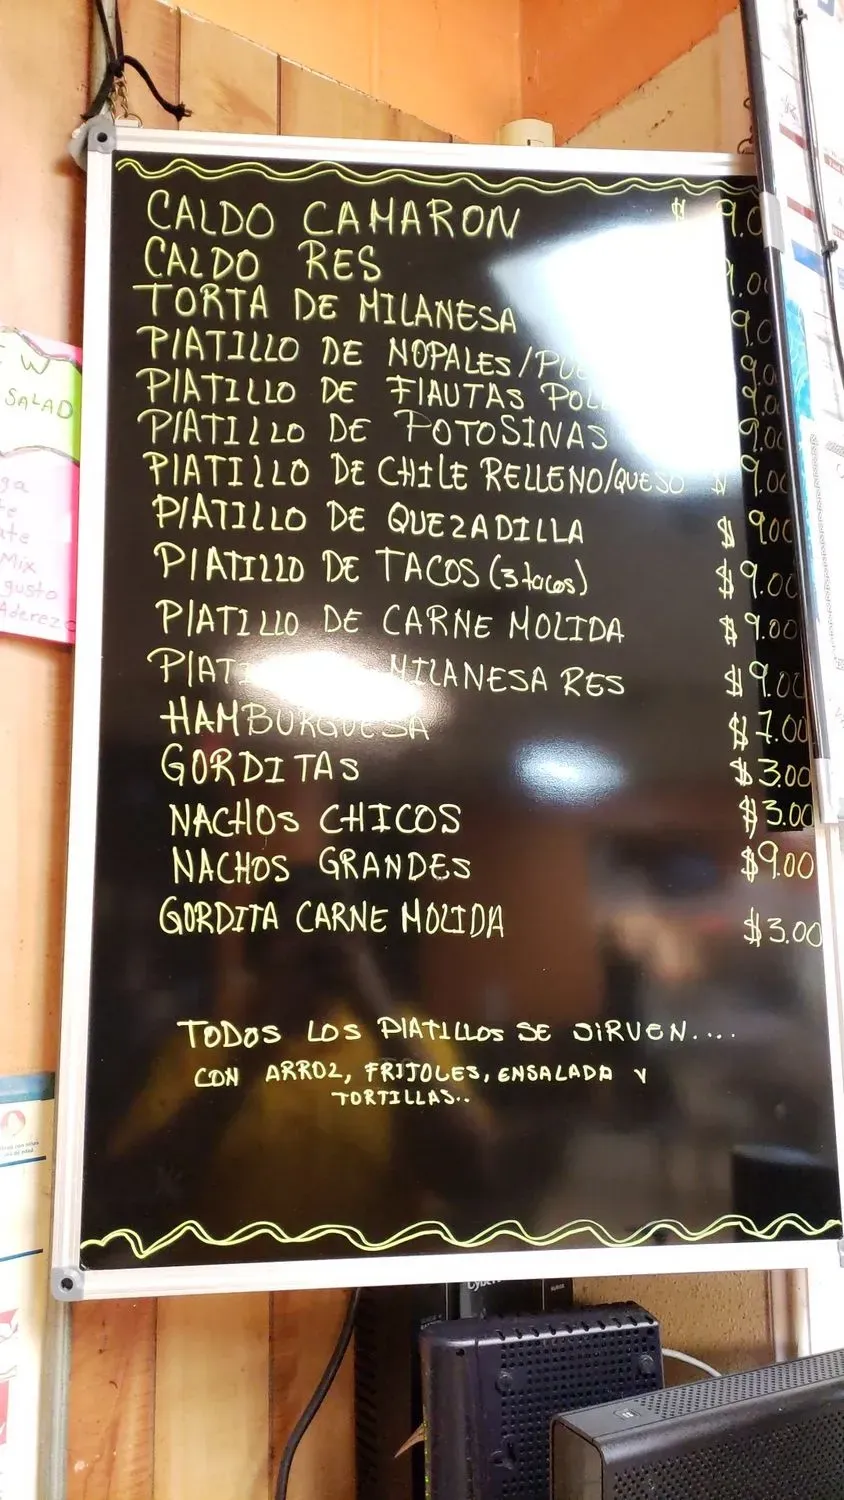 CALDO CAMARON $ 9.0
CALDO RES 9.00
TORTA DE MILANESA 9.0
PLATILLO DE NOPALES/ 9.0
PLATILLO DE FLAUTAS 9.0
PLATILLO DE POTOSINAS 9.00
PLATILLO DE CHILE RELLENO/QUESO $ 9.00
PLATILLO DE QUEZADILLA $ 9.00
PLATILLO DE TACOS (3 tacos) $9.00
PLATILLO DE CARNE MOLIDA $9.00
MILANESA RES $9.00
HAMBURGUESA $7.00
GORDITAS $3.00
NACHOS CHICOS $3.00
NACHOS GRANDES $9.00
GORDITA CARNE MOLIDA $3.00
TODOS LOS PLATILLOS SE SIRVEN....
CON ARROZ, FRIJOLES, ENSALADA Y
TORTILLAS..
W
SALAD
Mix
gusto
Aderezo